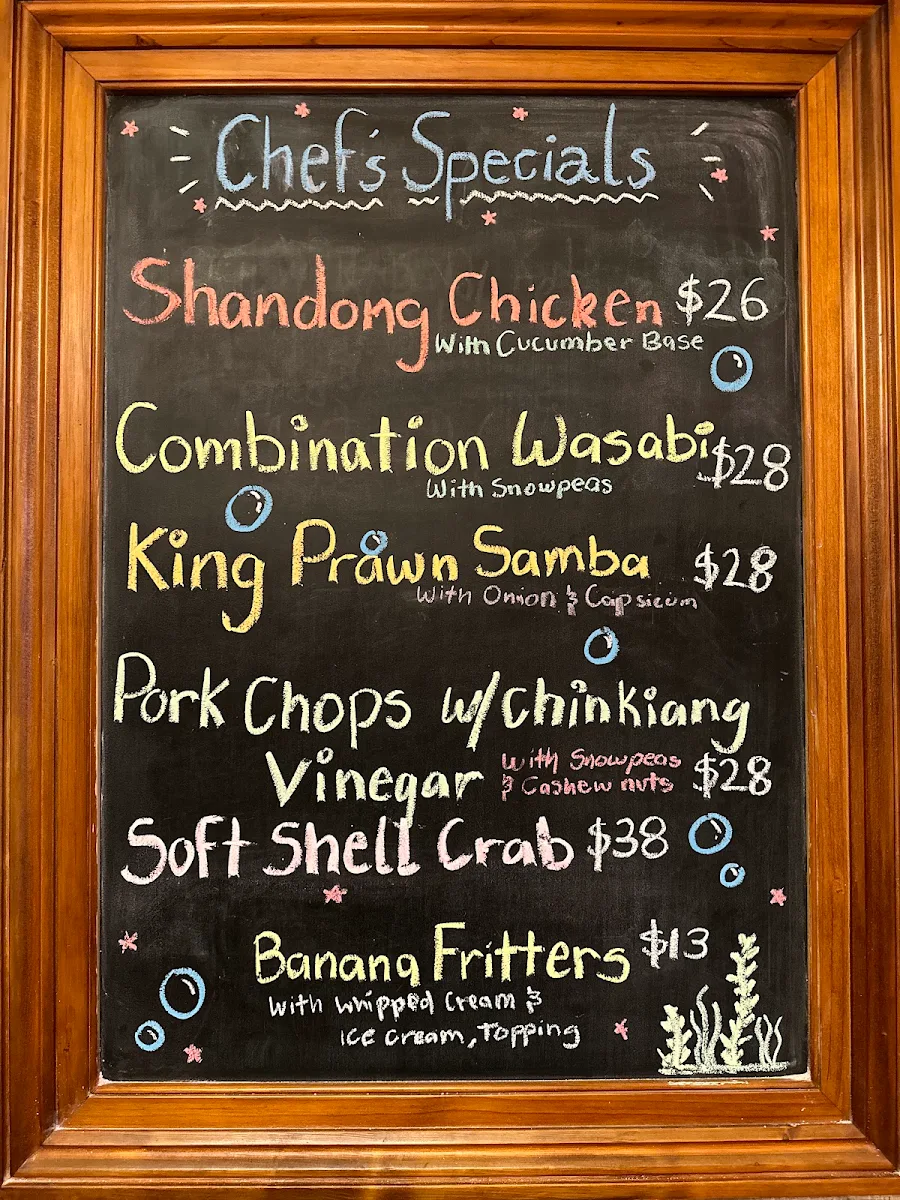 Chef's Specials
Shandong Chicken $26
With Cucumber Base
Combination Wasabi $28
With Snowpeas
King Prawn Samba $28
With Onion & Capsicum
Pork Chops w/Chinkiang
Vinegar With Snowpeas $28
& Cashew nuts
Soft Shell Crab $38
Banana Fritters $13
With Whipped Cream &
Ice Cream, Topping